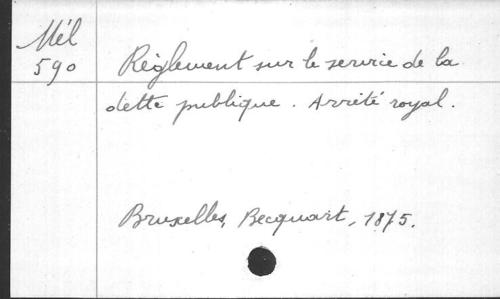 Mél
590
Règlement sur le service de la
dette publique. Arrêté royal.
Bruxelles, Becquart, 1875.